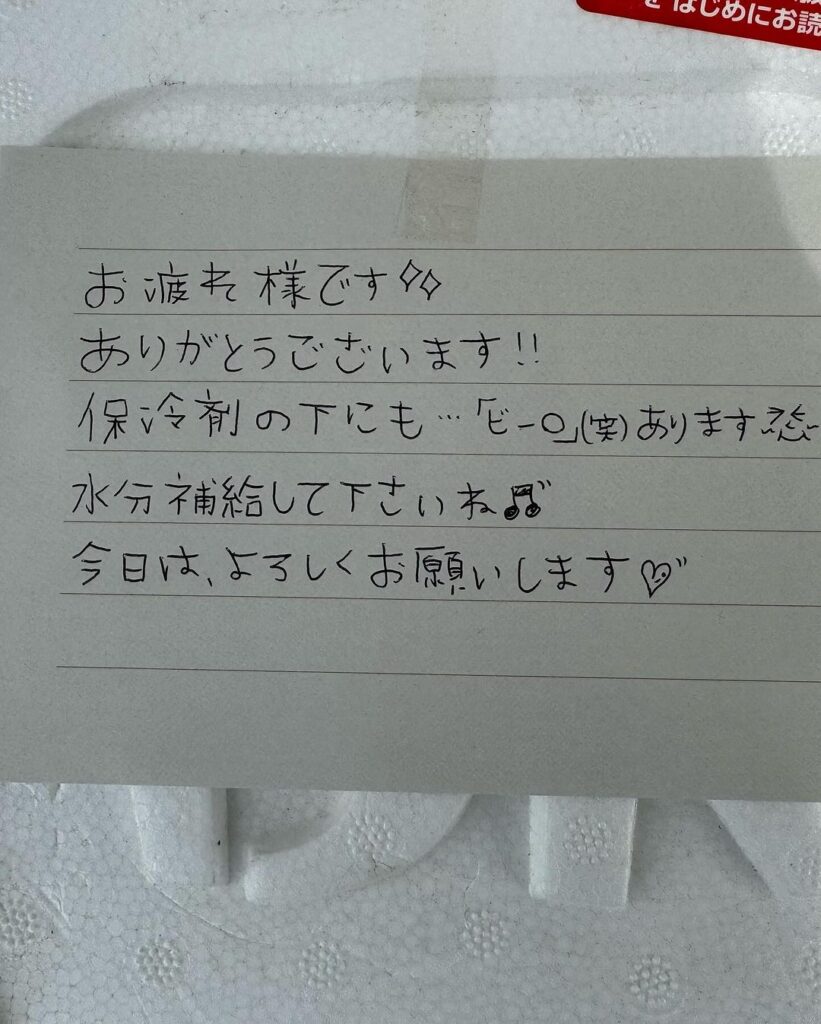 をはじめにお読
お疲れ様です
ありがとうございます!!
保冷剤の下にも…「ビー〇」(笑)あります
水分補給して下さいね♫
今日は、よろしくお願いします♡